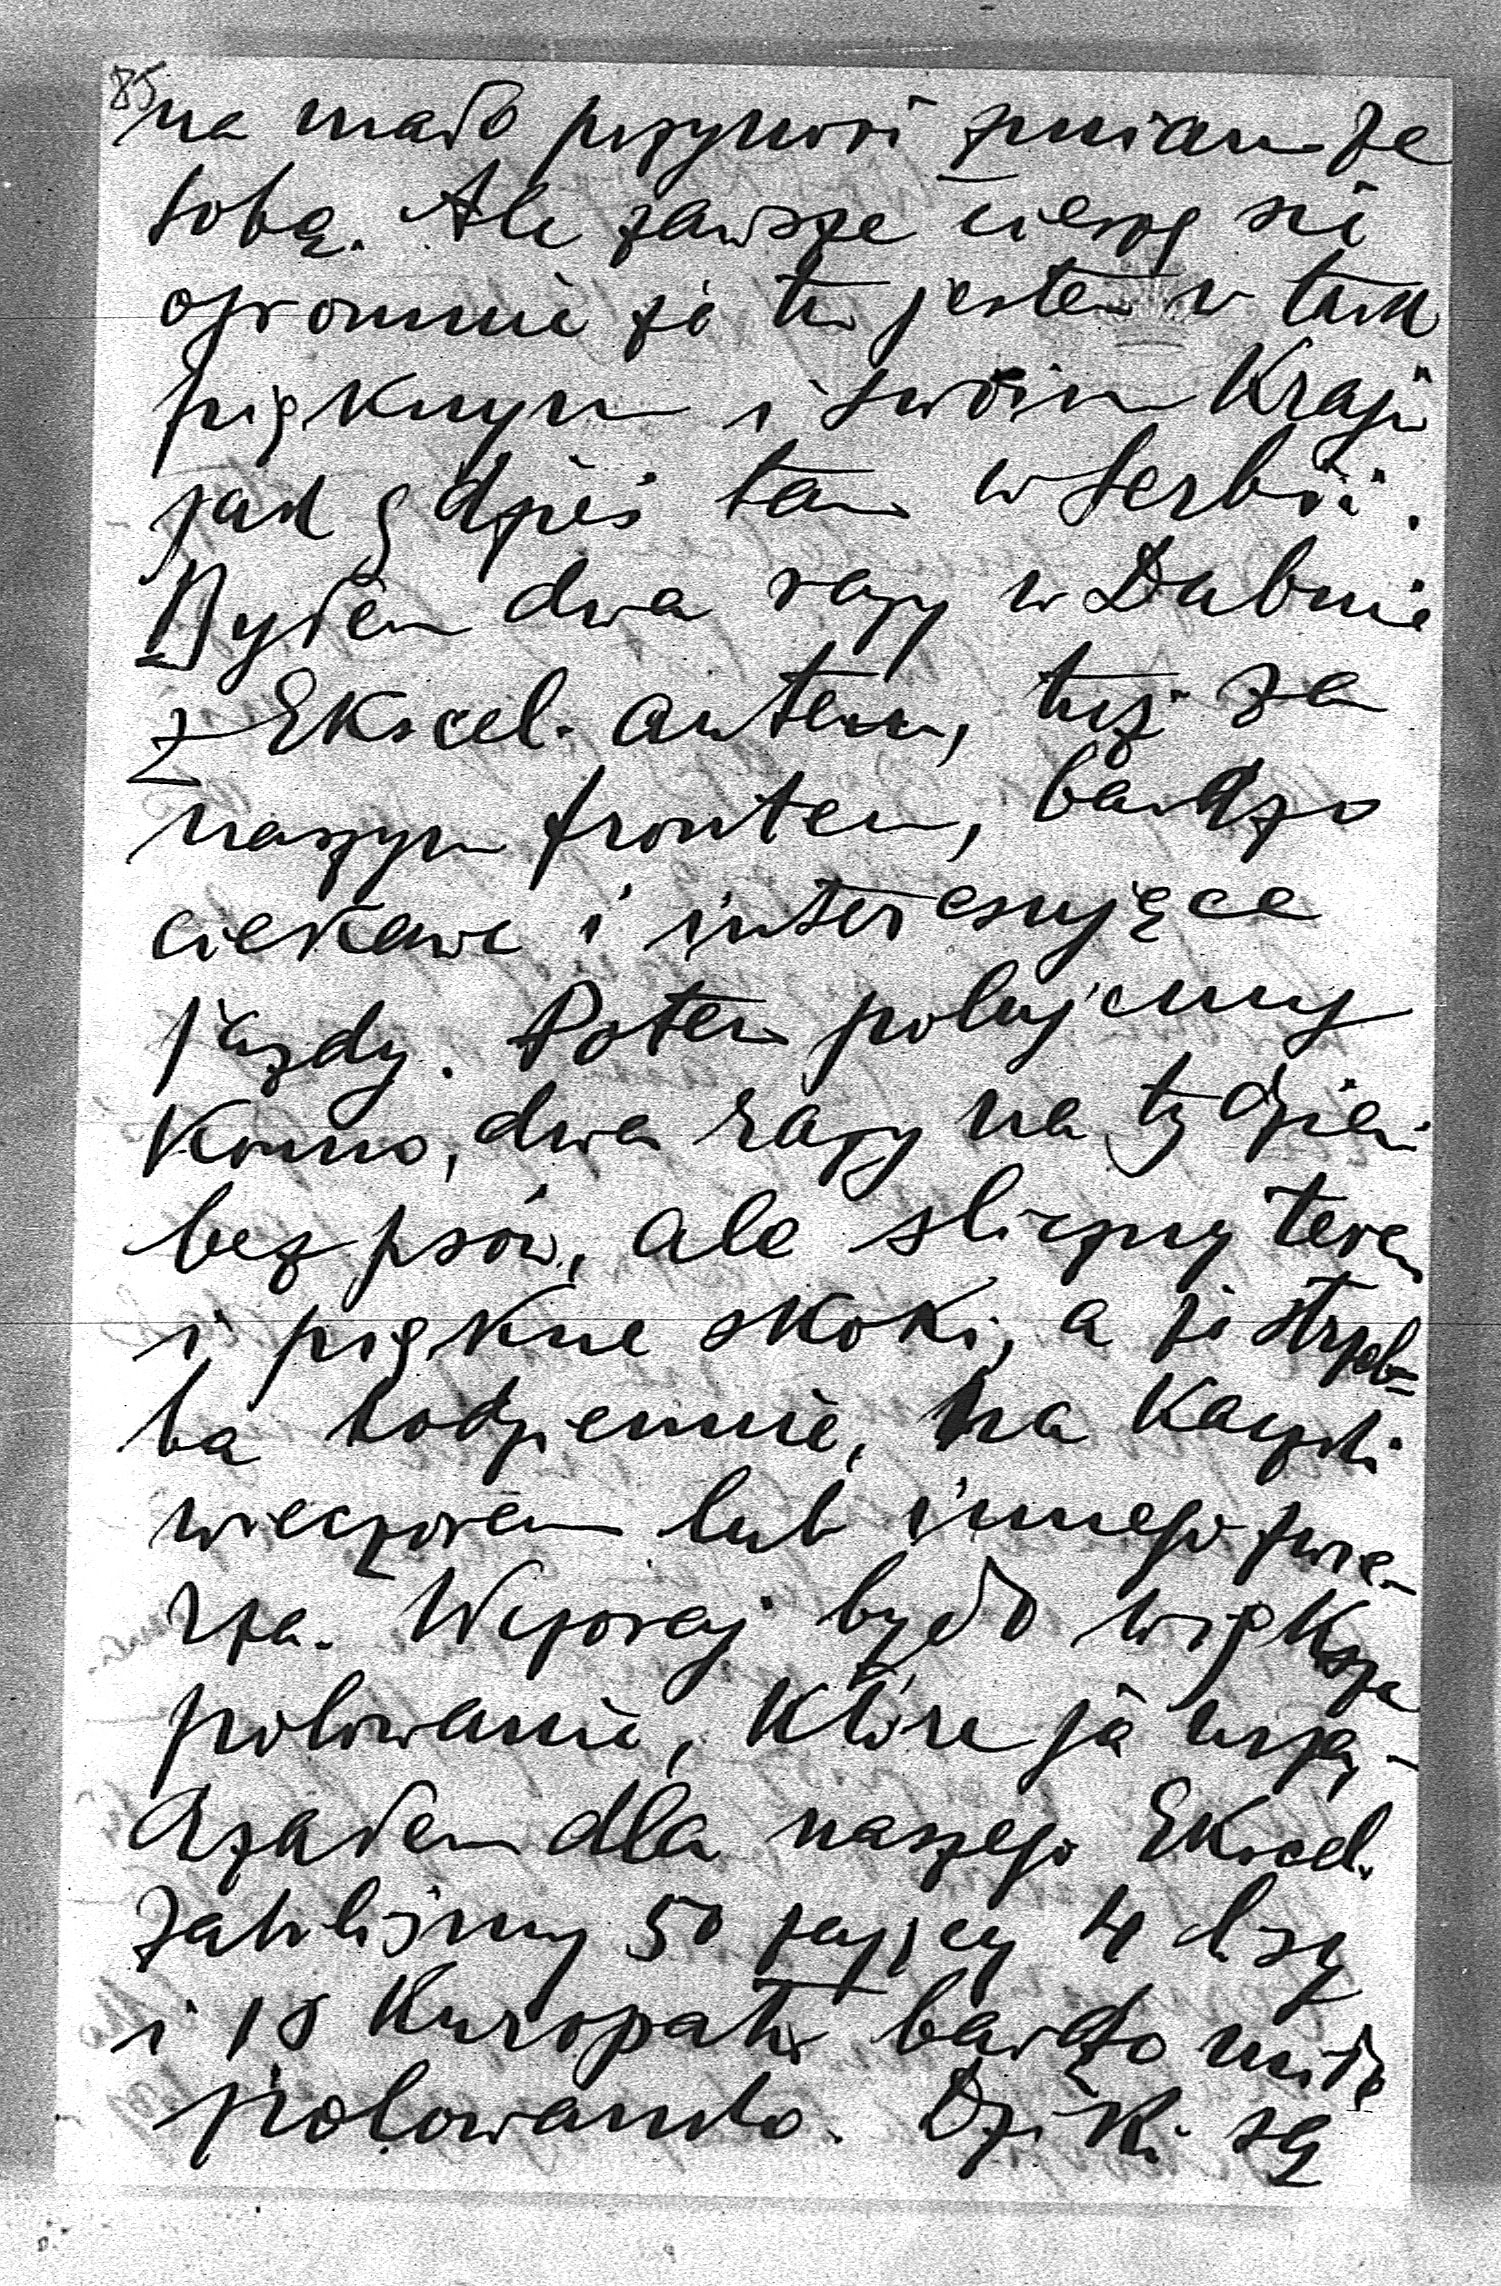 85
na mało przynosi zmian ze
sobą. Ale zawsze cieszę się
ogromnie że tu jestem w tak
pięknym i swoim Kraju
jak gdzieś tam w Serbii.
Byłem dwa razy w Dubnie
z Ekscel. autem, tuż za
naszym frontem, bardzo
ciekawe i interesujące
jazdy. Potem polujemy
Konno, dwa razy na tydzień
bez psów, ale śliczny teren
i piękne skoki, a ja strzel=
ba codziennie, na Kaczki
wieczorem lub innego zwie-
rza. Wczoraj było większe
polowanie, Które ja urzą-
dzałem dla naszego Ekscel.
Zabiliśmy 50 zajęcy 4 lisy
i 18 Kuropatw bardzo miłe
polowanko. Dziki są